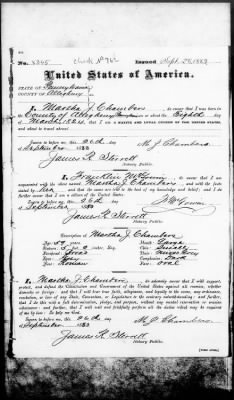 No. 8345 Issued Sept. 28, 1883
United States of America.
STATE OF Pennsylvania
COUNTY OF Allegheny
I, Martha J. Chambers, do swear that I was born in the
County of Allegheny on or about the Eighth day
of March, 1824; that I am a NATIVE AND LOYAL CITIZEN OF THE UNITED STATES,
and about to travel abroad.
Sworn to before me, this 26th
of September 1883
M J Chambers
James R. Sterrett
Notary Public.
I, Franklin McGowin, do swear that I am
acquainted with the above named Martha J Chambers, and with the facts
stated by her, and that the same are true to the best of my knowledge and belief.
Sworn to before me, this 26th
of September 1883
James R Sterrett
Notary Public.
Description of Martha J Chambers
Age: 59 years
Mouth: Large
Chin:
Hair:
Complexion:
Face: Oval
Nose: Roman
I, Martha J. Chambers, do solemnly swear that I will support,
protect, and defend the Constitution and Government of the United States against all enemies, whether
domestic or foreign; and that I will bear true faith, allegiance, and loyalty to the same, any ordinance,
resolution, or law of any State, Convention, or Legislature to the contrary notwithstanding; and further,
that I do this with a full determination, pledge, and purpose, without any mental reservation or evasion
whatsoever; and further, that I will well and faithfully perform all the duties which may be required of
me by law: So help me God.
Sworn to before me, this 26th
of September 1883
M J Chambers
James R Sterrett
Notary Public.